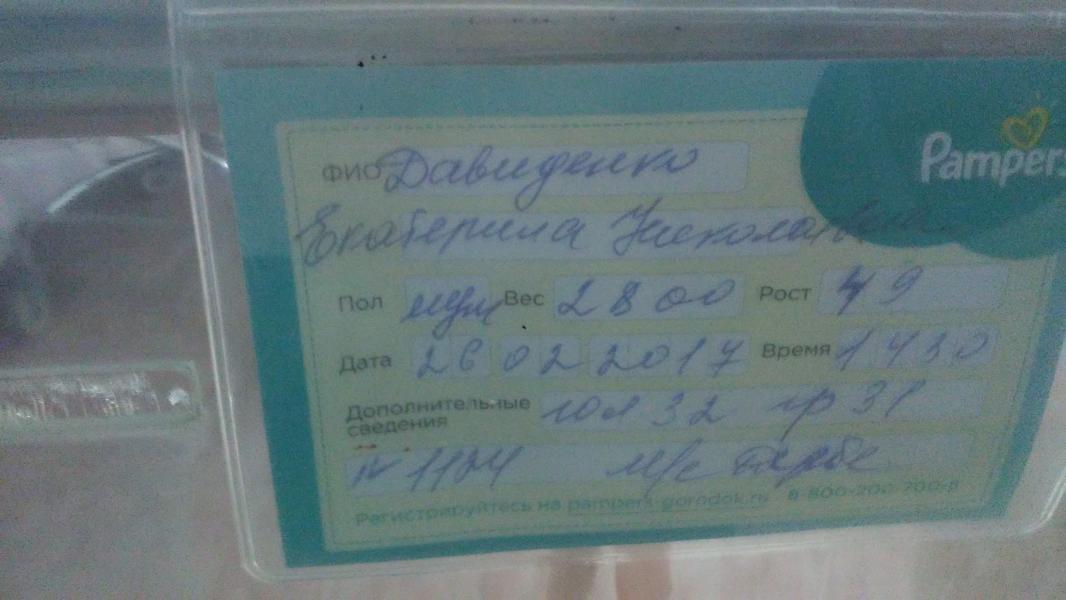 Pampers
ФИО Давиденко
Екатерина Николаевна
Пол муж Вес 2800 Рост 49
Дата 26 02 2017 Время 1430
Дополнительные
сведения гол 32 гр 31
N 1124 м/с
Регистрируйтесь на pampers-gorodok.ru 8-800-200-700-8